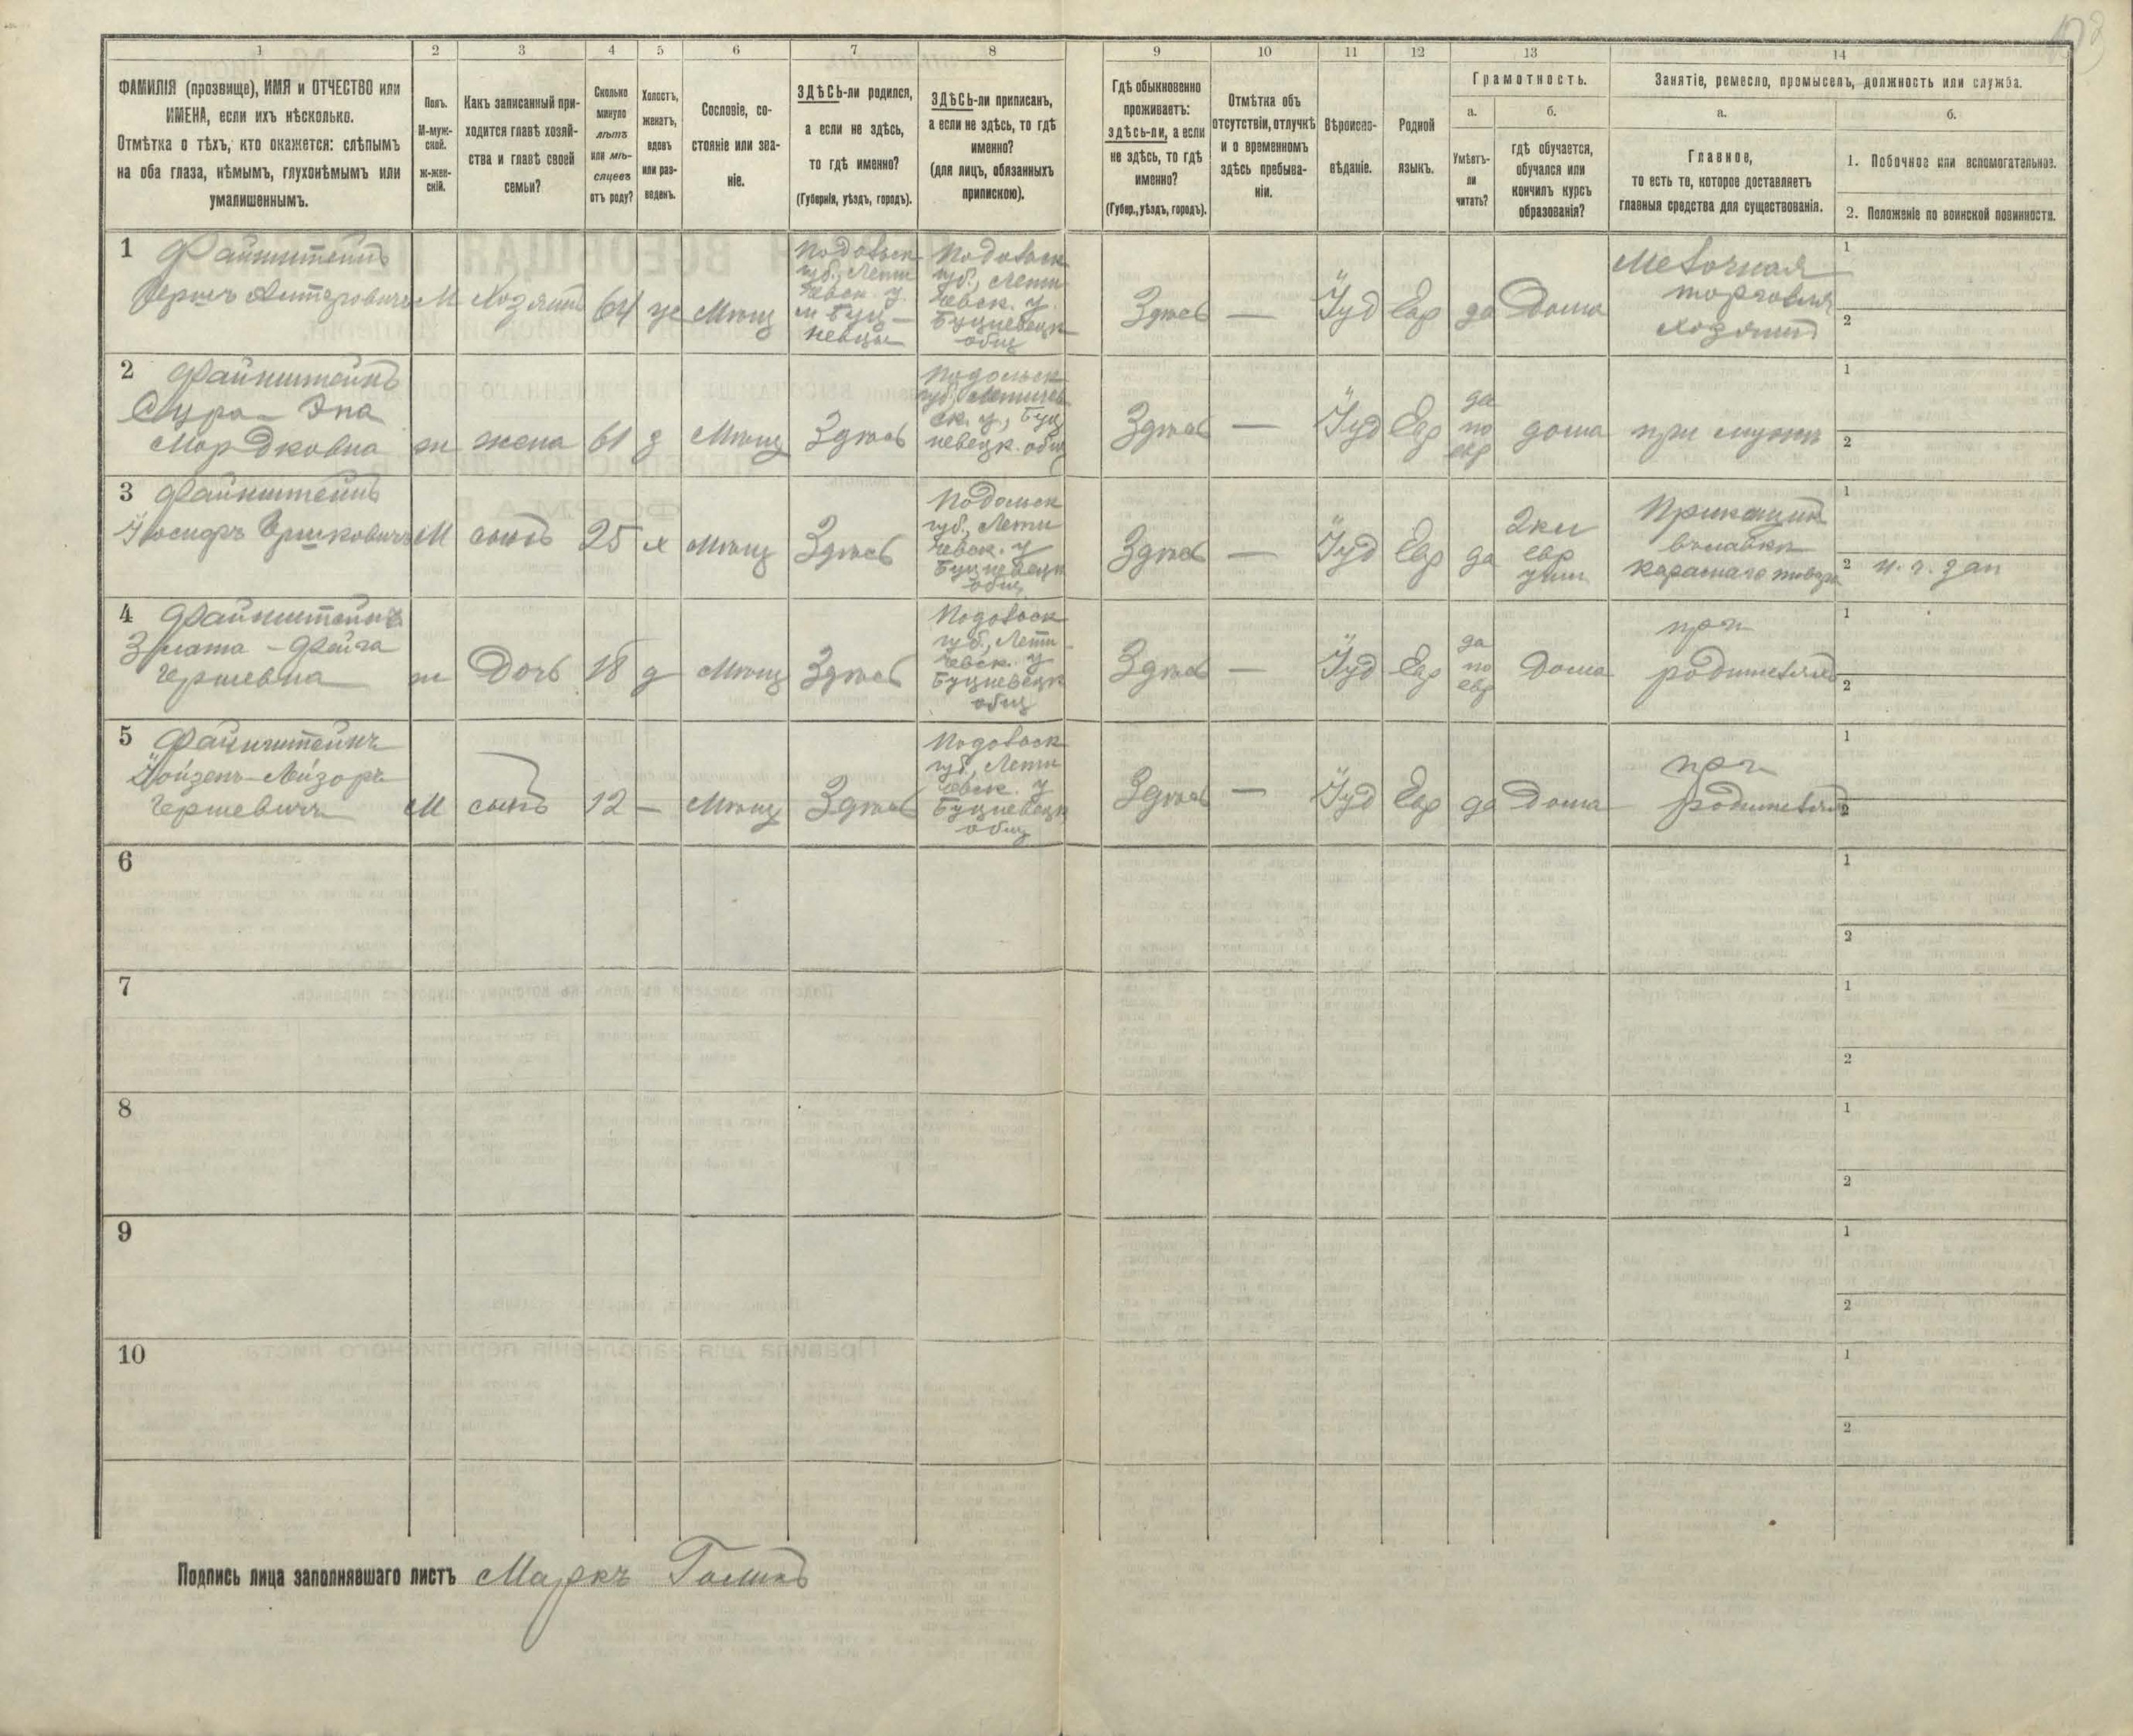 1
2
3
4
5
6
7
8
9
10
11
12
13
14
ФАМИЛІЯ (прозвище), ИМЯ и ОТЧЕСТВО или
ИМЕНА, если ихъ нѣсколько.
Отмѣтка о тѣхъ, кто окажется: слѣпымъ
на оба глаза, нѣмымъ, глухонѣмымъ или
умалишеннымъ.
Полъ.
М-муж-
ской.
ж-жен-
скій.
Какъ записанный при-
ходится главѣ хозяй-
ства и главѣ своей
семьи?
Сколько
минуло
лѣтъ
или мѣ-
сяцевъ
отъ роду?
Холостъ,
женатъ,
вдовъ
или раз-
веденъ.
Сословіе, со-
стояніе или зва-
ніе.
ЗДѢСЬ-ли родился,
а если не здѣсь,
то гдѣ именно?
(Губернія, уѣздъ, городъ).
ЗДѢСЬ-ли приписанъ,
а если не здѣсь, то гдѣ
именно?
(для лицъ, обязанныхъ
припискою).
Гдѣ обыкновенно
проживаетъ:
здѣсь-ли, а если
не здѣсь, то гдѣ
именно?
(Губер., уѣздъ, городъ).
Отмѣтка объ
отсутствіи, отлучкѣ
и о временномъ
здѣсь пребыва-
ніи.
Вѣроиспо-
вѣданіе.
Родной
языкъ.
Грамотность.
а.
Умѣетъ-
ли
читать?
б.
гдѣ обучается,
обучался или
кончилъ курсъ
образованія?
Занятіе, ремесло, промыселъ, должность или служба.
а.
Главное,
то есть то, которое доставляетъ
главныя средства для существованія.
б.
1. Побочное или вспомогательное.
2. Положеніе по воинской повинности.
1 Файнштейнъ
Гершъ Алтеровичъ
М
Хозяинъ
64
же
Мѣщ
Подольск
губ., Лети
чевск. у.
м Буц-
невцы
Подольск
губ., Лети
чевск. у.
Буцневецк
общ
Здѣсь
—
Іуд
Евр
да
Дома
Мелочная
торговля
хозяинъ
1
2
2 Файнштейнъ
Сура - Эта
Мордковна
ж
жена
61
з
Мѣщ
Здѣсь
Подольск
губ, Летичев
ск. у, Буц
невецк. общ
Здѣсь
—
Іуд
Евр
да
по
евр
дома
при мужѣ
1
2
3 Файнштейнъ
Іосифъ Гершковичъ
М
сынъ
25
х
Мѣщ
Здѣсь
Подольск
губ., Лети
чевск. у
Буцневецк
общ
Здѣсь
—
Іуд
Евр
да
2кл
евр
учил
Прикащикъ
въ лавкѣ
краснаго товара
1
2 н. ч. зап
4 Файнштейнъ
Злата - Фейга
Гершевна
ж
Дочь
18
д
Мѣщ
Здѣсь
Подольск
губ., Лети
чевск. у
Буцневецк
общ
Здѣсь
—
Іуд
Евр
да
по
евр
Дома
при
родителяхъ
1
2
5 Файнштейнъ
Лейзоръ
Гершевичъ
М
сынъ
12
—
Мѣщ
Здѣсь
Подольск
губ., Лети
чевск. у
Буцневецк
общ
Здѣсь
—
Іуд
Евр
да
Дома
при
родителяхъ
1
2
6
1
2
7
1
2
8
1
2
9
1
2
10
1
2
Подпись лица заполнявшаго листъ Маркъ